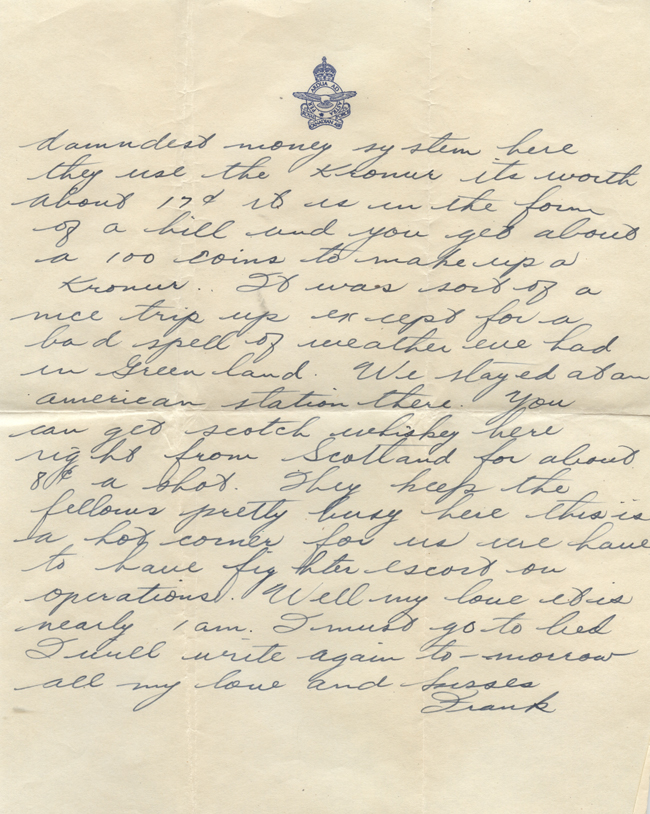 PER ARDUA AD ASTRA
ROYAL CANADIAN AIR FORCE
damndest money system here
they use the Kronur its worth
about 17¢ it is in the form
of a bill and you get about
a 100 coins to make up a
Kronur.. It was sort of a
nice trip up except for a
bad spell of weather we had
in Greenland. We stayed at an
american station there. You
can get scotch whiskey here
right from Scotland for about
8¢ a shot. They keep the
fellows pretty busy here this is
a hot corner for us we have
to have fighter escort on
operations. Well my love it is
nearly 1 am. I must go to bed
I will write again to-morrow
all my love and kisses
Frank